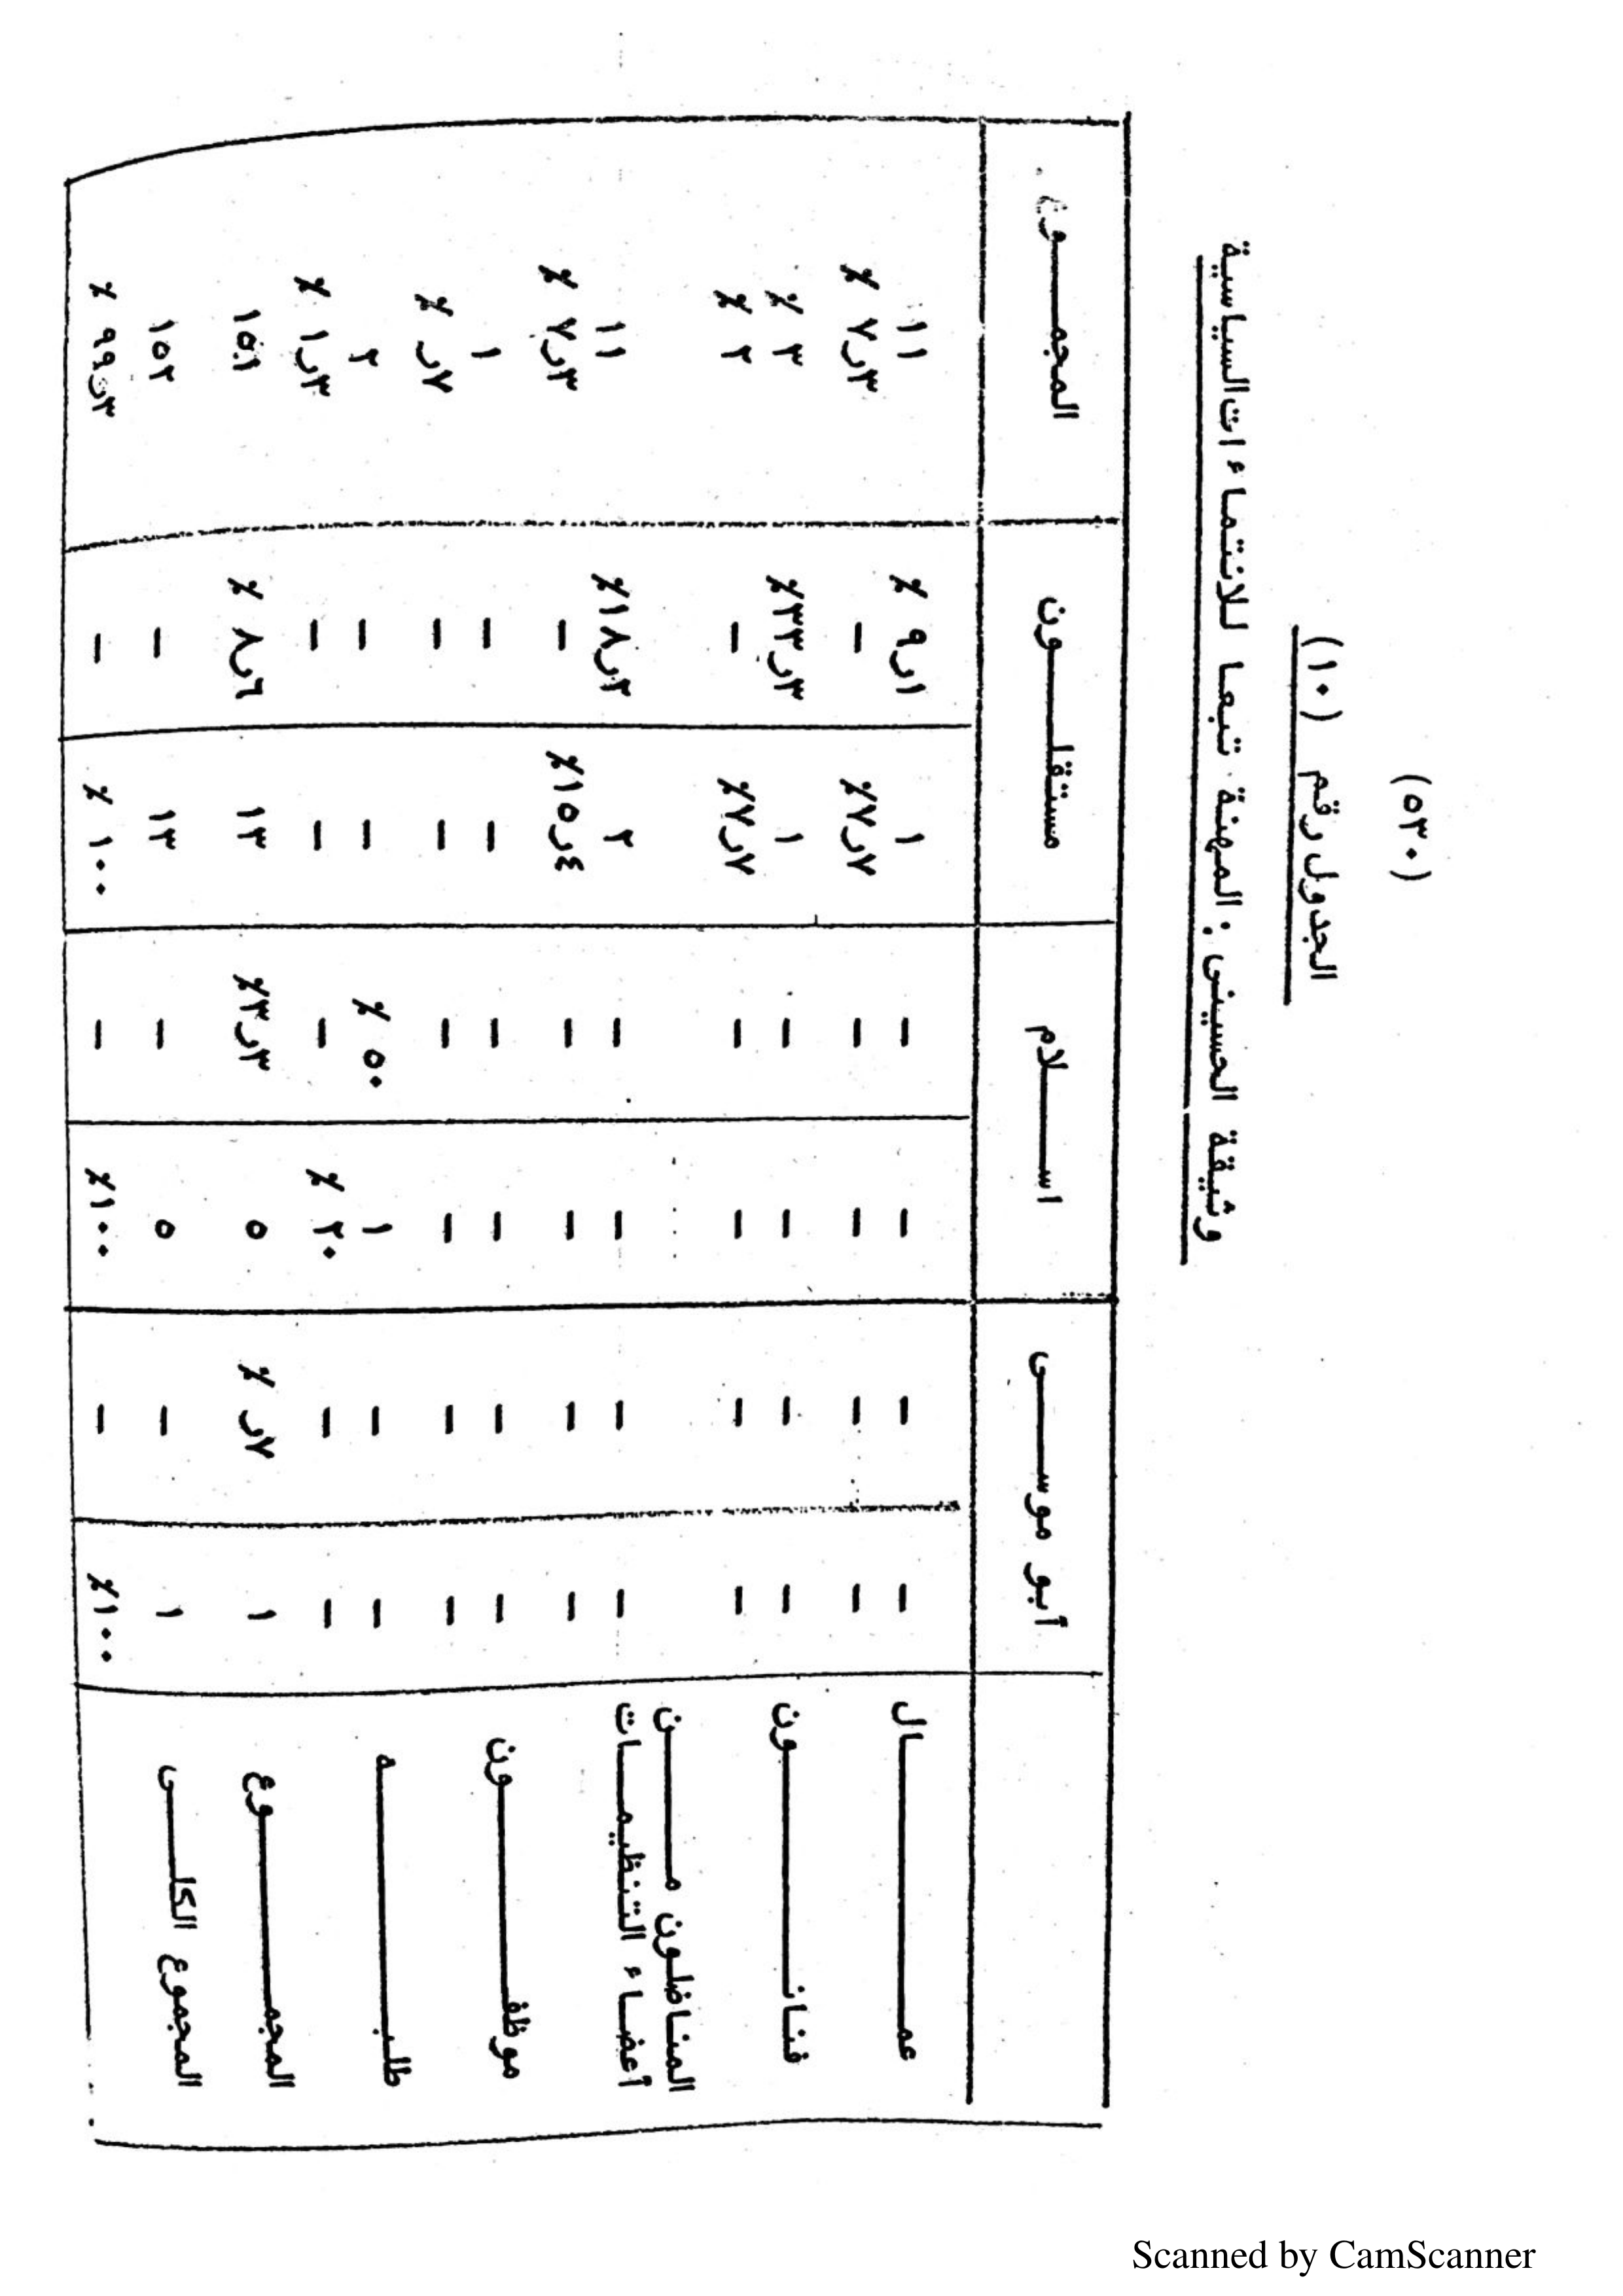 (٥٣٠)
الجدول رقم (١٠)
وثيقة الحسينى : المهنة تبعا للانتماءات السياسية
أبو موسى اسلام مستقلون المجموع
عمال — — — — ١ ١ر٩ ٪ ١١
— — — — ٧ر٧٪ — ٣ر٧ ٪
فنانون — — — — ١ ٣ر٣٣٪ ٣ ٪
— — — — ٧ر٧٪ — ٢ ٪
المناضلون من
أعضاء التنظيمات — — — — ٢ ٢ر١٨٪ ١١
— — — — ٤ر١٥٪ — ٣ر٧ ٪
موظفون — — — — — — ١
— — — — — — ٧ر ٪
طلبه — — ١ ٥٠ ٪ — — ٢
— — ٢٠ ٪ — — — ٣ر١ ٪
المجموع ١ ٧ر ٪ ٥ ٣ر٣٪ ١٣ ٦ر٨ ٪ ١٥١
المجموع الكلى ١ — ٥ — ١٣ — ١٥٢
١٠٠٪ — ١٠٠٪ — ١٠٠ ٪ — ٣ر٩٩ ٪
Scanned by CamScanner